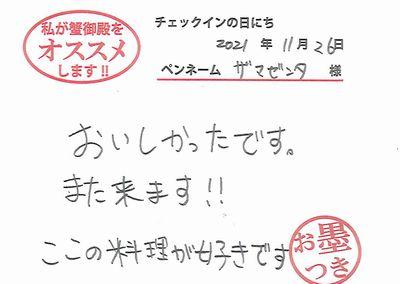 私が蟹御殿を
オススメ
します!!
チェックインの日にち
2021 年 11月 26日
ペンネーム ザマゼンタ 様
おいしかったです。
また来ます!!
ここの料理が好きです
お墨
つき